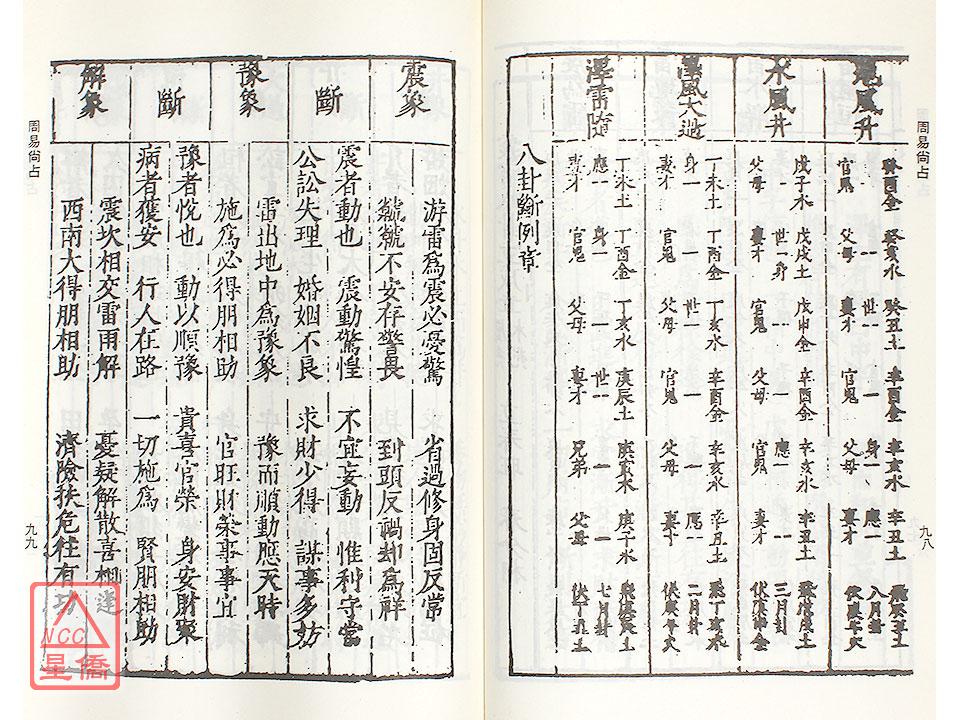 周易尙占
九八
地風升
癸酉金 癸亥水 癸丑土 辛酉金 辛亥水 辛丑土
世一一 身一 應一一 八月卦
官鬼 父母 妻才 官鬼 父母 妻才
水風井
戊子水 戊戌土 戊申金 辛酉金 辛亥水 辛丑土
世一身 應一 三月卦
父母 妻才 官鬼 父母 官鬼 妻才
澤風大過
丁未土 丁酉金 丁亥水 辛酉金 辛亥水 辛丑土 飛丁亥水
身一一 二月卦
妻才 官鬼 父母 官鬼 父母 妻才
澤雷隨
丁未土 丁酉金 丁亥水 庚辰土 庚寅木 庚子水
應一一 身一 世一一 七月卦
妻才 官鬼 父母 妻才 兄弟 父母
八卦斷例章
周易尙占
九九
震象
游雷爲震必憂驚 省過修身固反常
虩虩不安存警畏 到頭反禍却爲祥
斷
震者動也 震動驚惶 不宜妄動 惟利守當
公訟失理 婚姻不良 求財少得 謀事多妨
豫象
雷出地中爲豫象 豫而順動應天時
施爲必得朋相助 官旺財榮事事宜
斷
豫者悅也 動以順豫 貴喜官榮 身安財聚
病者獲安 行人在路 一切施爲 賢朋相助
解象
震坎相交雷雨解 憂疑解散喜相逢
西南大得朋相助 濟險扶危往有功
NCC
星僑